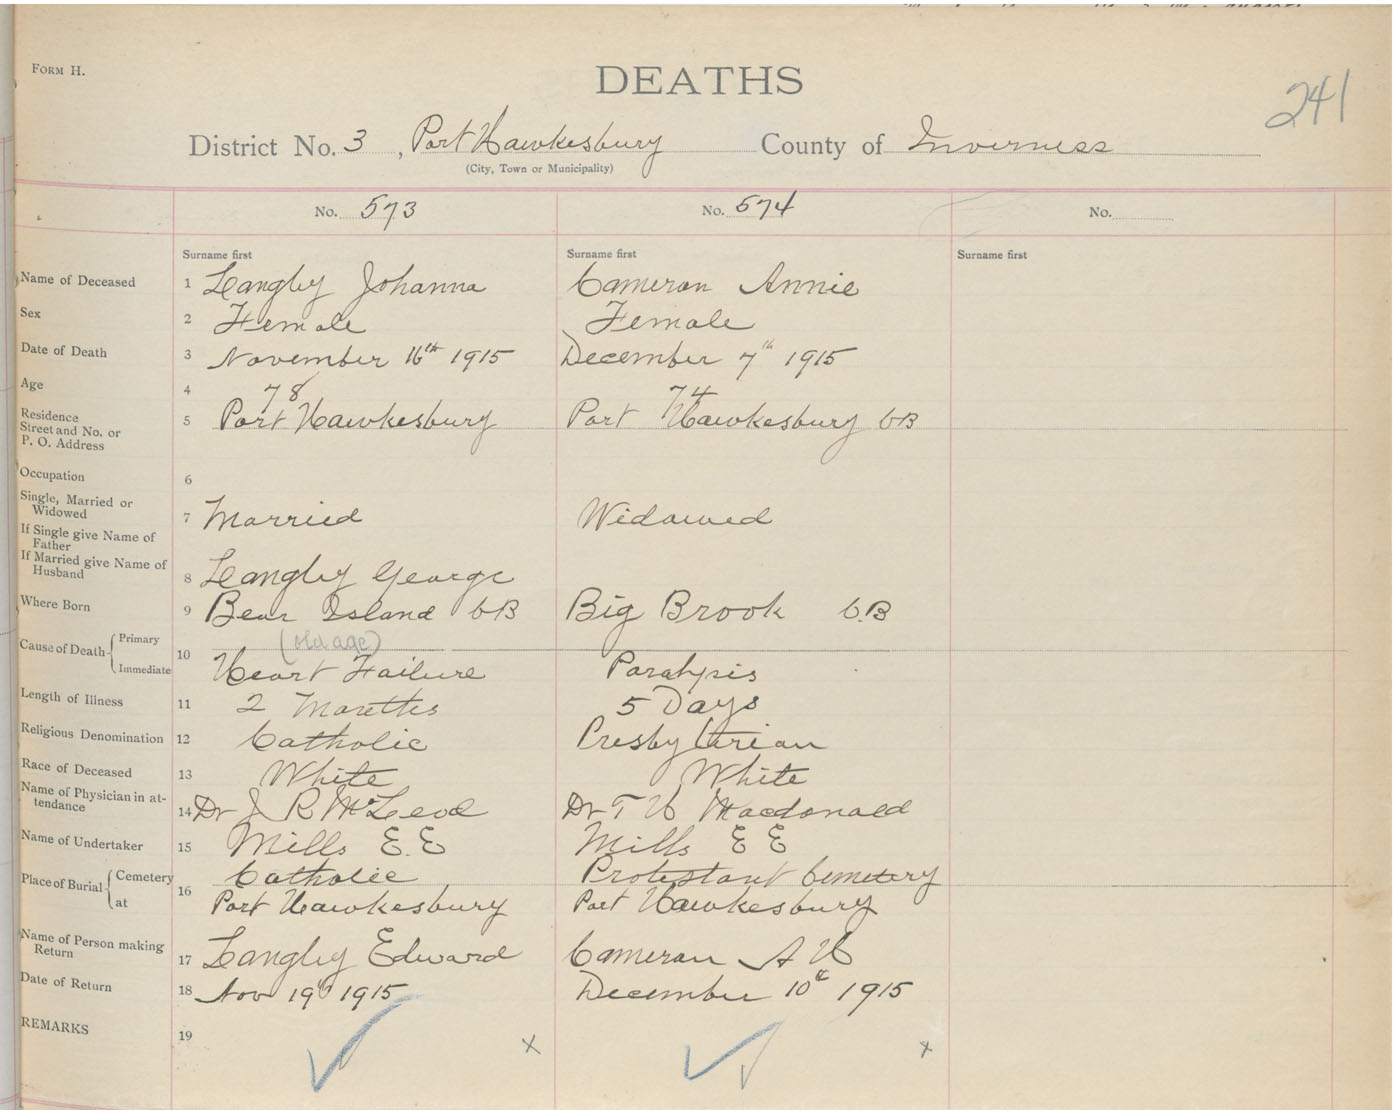 FORM H.
DEATHS
241
District No. 3, Port Hawkesbury County of Inverness
(City, Town or Municipality)
No. 573 No. 574 No.
Surname first Surname first Surname first
Name of Deceased 1 Langley Johanna Cameron Annie
Sex 2 Female Female
Date of Death 3 November 16th 1915 December 7th 1915
Age 4 78 74
Residence
Street and No. or
P. O. Address 5 Port Hawkesbury Port Hawkesbury CB
Occupation 6
Single, Married or
Widowed 7 Married Widowed
If Single give Name of
Father
If Married give Name of
Husband 8 Langley George
Where Born 9 Bear Island CB Big Brook C.B
Cause of Death Primary (old age)
Immediate 10 Heart Failure Paralysis
Length of Illness 11 2 Months 5 Days
Religious Denomination 12 Catholic Presbyterian
Race of Deceased 13 White White
Name of Physician in at-
tendance 14 Dr J R McLeod Dr T H Macdonald
Name of Undertaker 15 Mills E.E Mills E E
Place of Burial Cemetery 16 Catholic Protestant Cemetery
at Port Hawkesbury Port Hawkesbury
Name of Person making
Return 17 Langley Edward Cameron A H
Date of Return 18 Nov 19th 1915 December 10th 1915
REMARKS 19 x x